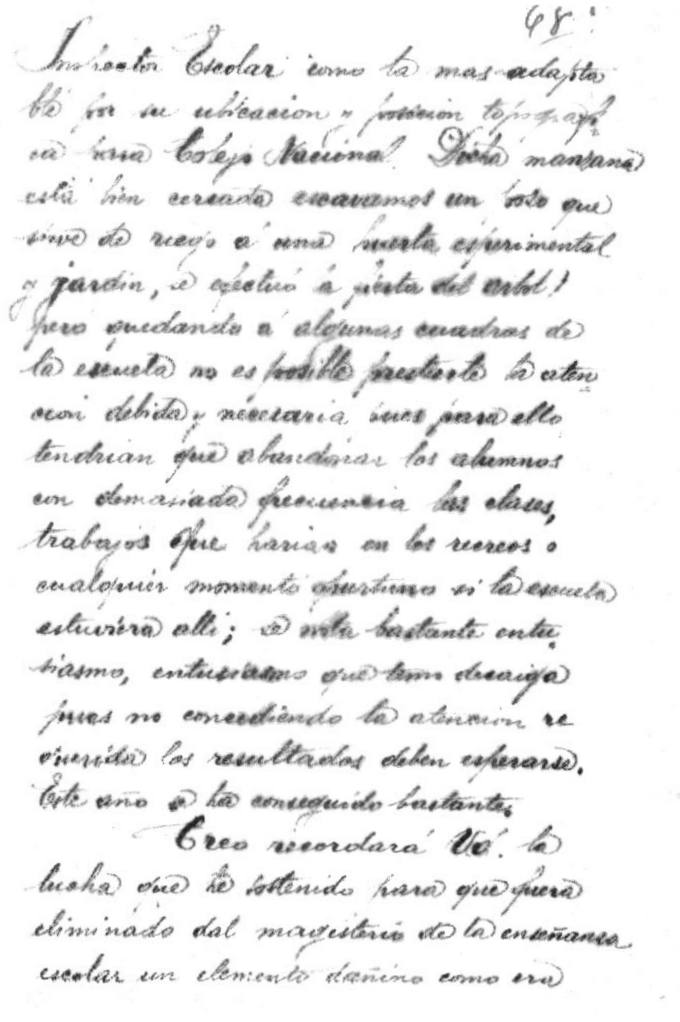 68
Inspector Escolar como la mas adapta
ble por su ubicacion y posición topografi
ca para Colegio Nacional. Dicha manzana
está bien cercada escavamos un pozo que
sirve de riego á una huerta esperimental
y jardin, se efectuó la fiesta del arbol!
pero quedando á algunas cuadras de
la escuela no es posible prestarle la aten
cion debida y necesaria pues para ello
tendrian que abandonar los alumnos
con demasiada frecuencia las clases,
trabajos que harian en los recreos o
cualquier momento oportuno si la escuela
estuviera alli; se nota bastante entu
siasmo, entusiasmo que temo decaiga
pues no concediendo la atencion re
querida los resultados deben esperarse.
Este año se ha conseguido bastante.
Creo recordará Vd. la
lucha que he sostenido para que fuera
eliminado dal magisterio de la enseñansa
escolar un elemento dañino como era